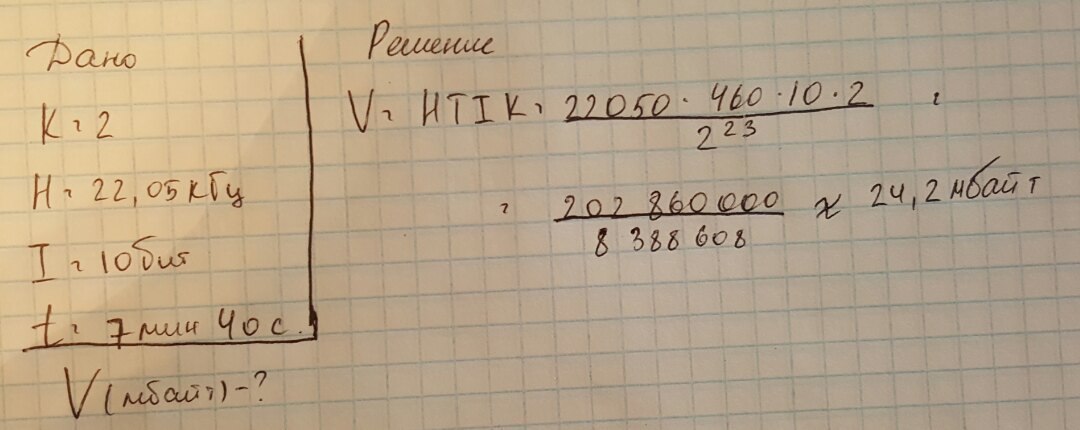 Дано
K = 2
H = 22,05 кГц
I = 10 бит
t = 7 мин 40 с.
V (мбайт) - ?
Решение
V = HTIK = 22050 · 460 · 10 · 2 / 2²³ =
= 202 860 000 / 8 388 608 ≈ 24,2 мбайт